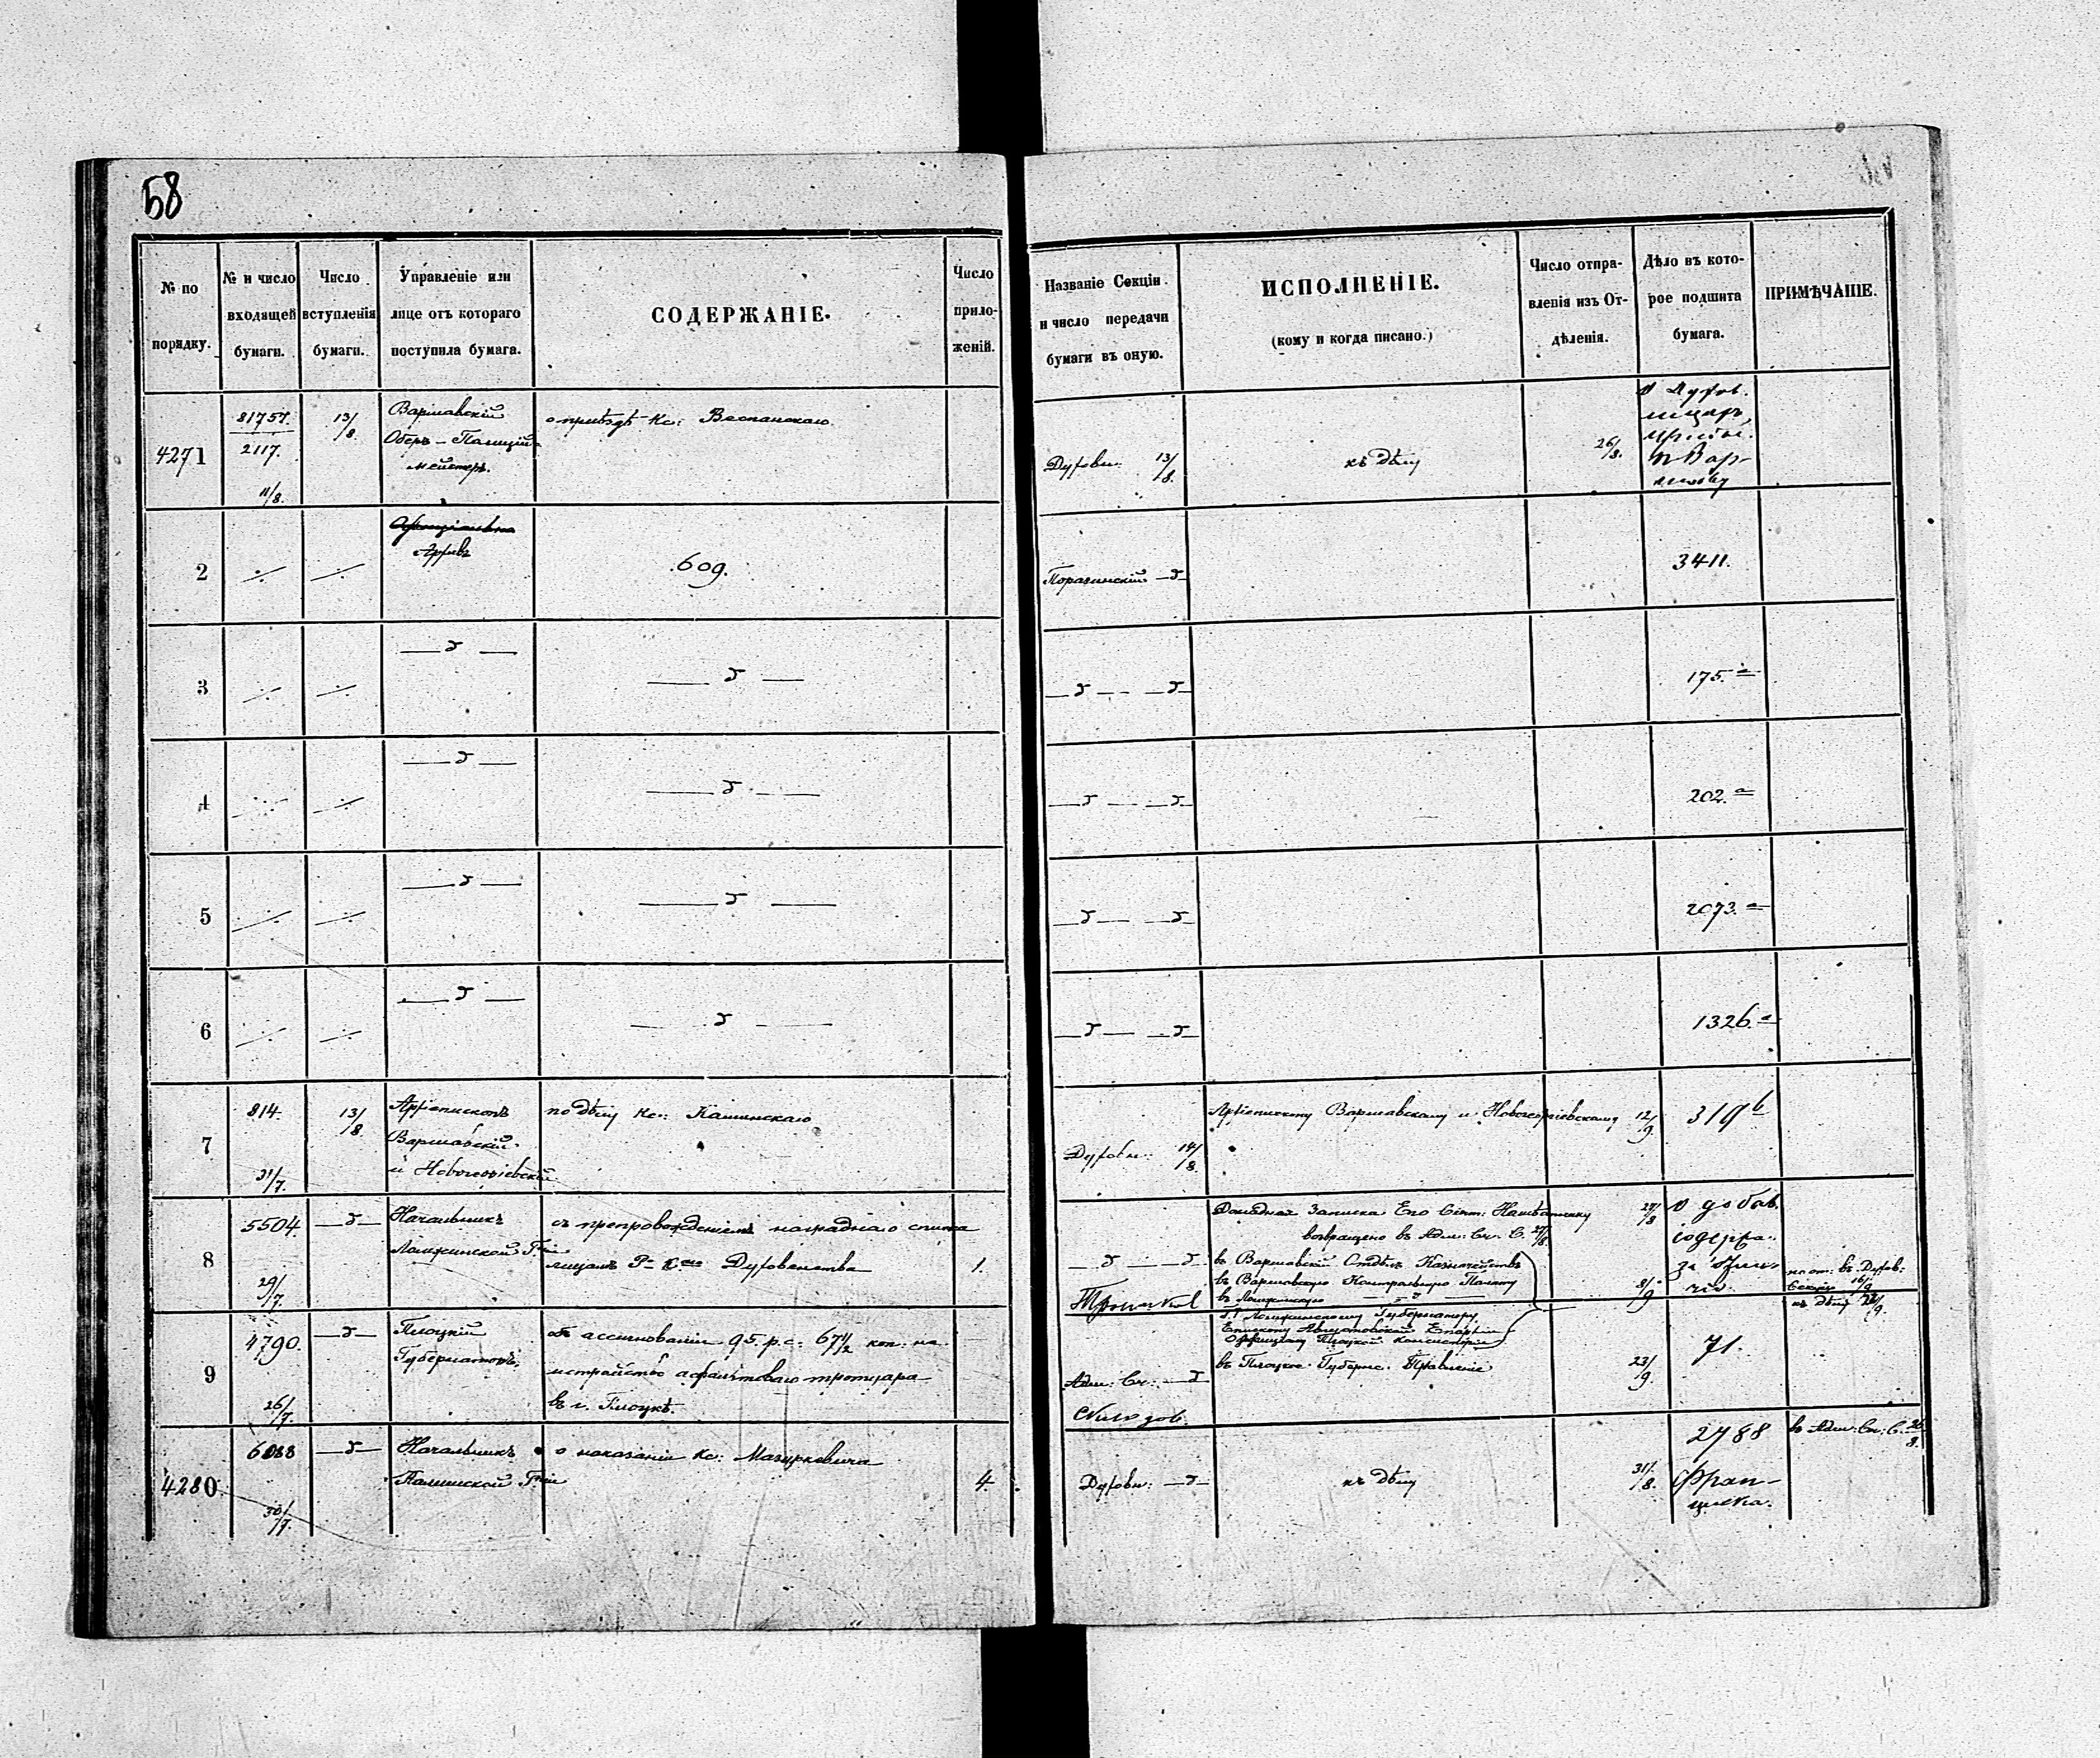 58
№ по порядку.
№ и число входящей бумаги.
Число вступленія бумаги.
Управленіе или лице отъ котораго поступила бумага.
СОДЕРЖАНІЕ.
Число приложеній.
Названіе Секціи и число передачи бумаги въ оную.
ИСПОЛНЕНІЕ.
(кому и когда писано.)
Число отправленія изъ Отдѣленія.
Дѣло въ которое подшита бумага.
ПРИМѢЧАНІЕ.
4271
81757.
2117.
11/8.
13/8.
Варшавскій
Оберъ-Полицій-
мейстеръ.
о пріѣздѣ Кс:
Духовн: 13/8.
къ дѣлу
26/8.
2
Архивъ
609.
3411.
3
175. а
4
202. а
5
2073. а
6
1326. а
7
814.
31/7.
13/8.
Архіепископъ
Варшавскій
и Новогеоргіевскій
по дѣлу Кс: Каминскаго
Духовн: 14/8.
Архіепископу Варшавскому и Новогеоргіевскому
12/9.
319 b
8
5504.
29/7.
Начальникъ
Ломжинской Г-ніи
съ препровожденіемъ наградного списка
лицамъ Р- К-го Духовенства
1.
Докладная Записка Его Сіят: Намѣстнику
27/8
возвращено въ Адм: Сч: С. 27/8.
въ Варшавскій Отдѣлъ Казначействъ
въ Варшавскую Контрольную Палату
въ Ломжинскую
8/9
О добав.
содержа-
къ дѣлу
9
4790.
26/7.
Плоцкій
Губернаторъ.
объ ассигнованіи 95 р.с: 67 1/2 коп: на
устройство асфальтоваго тротуара
въ г. Плоцкѣ.
Адм: Сч:
Г. Ломжинскому Губернатору
Епископу Августовской Епархіи
Оффиціалу Плоцкой Консисторіи
въ Плоцкое Губерн. Правленіе
23/9.
71.
4280
30/7.
Начальникъ
Г-ніи
о наказаніи Кс: Мазуркевича
4.
Духовн:
къ дѣлу
31/8.
2788
Фран-
циска.
въ Адм: Сч: С. 26/8.